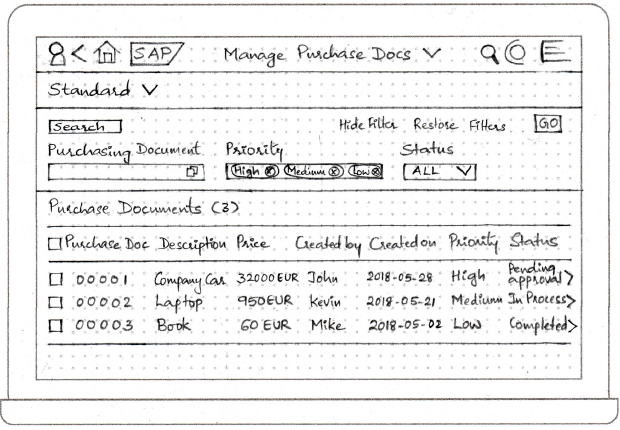 SAP Manage Purchase Docs
Standard
Search Hide Filter Restore Filters GO
Purchasing Document Priority Status
High Medium Low ALL
Purchase Documents (3)
Purchase Doc Description Price Created by Created on Priority Status
00001 Company Car 32000 EUR John 2018-05-28 High Pending approval
00002 Laptop 950 EUR Kevin 2018-05-21 Medium In Process
00003 Book 60 EUR Mike 2018-05-02 Low Completed